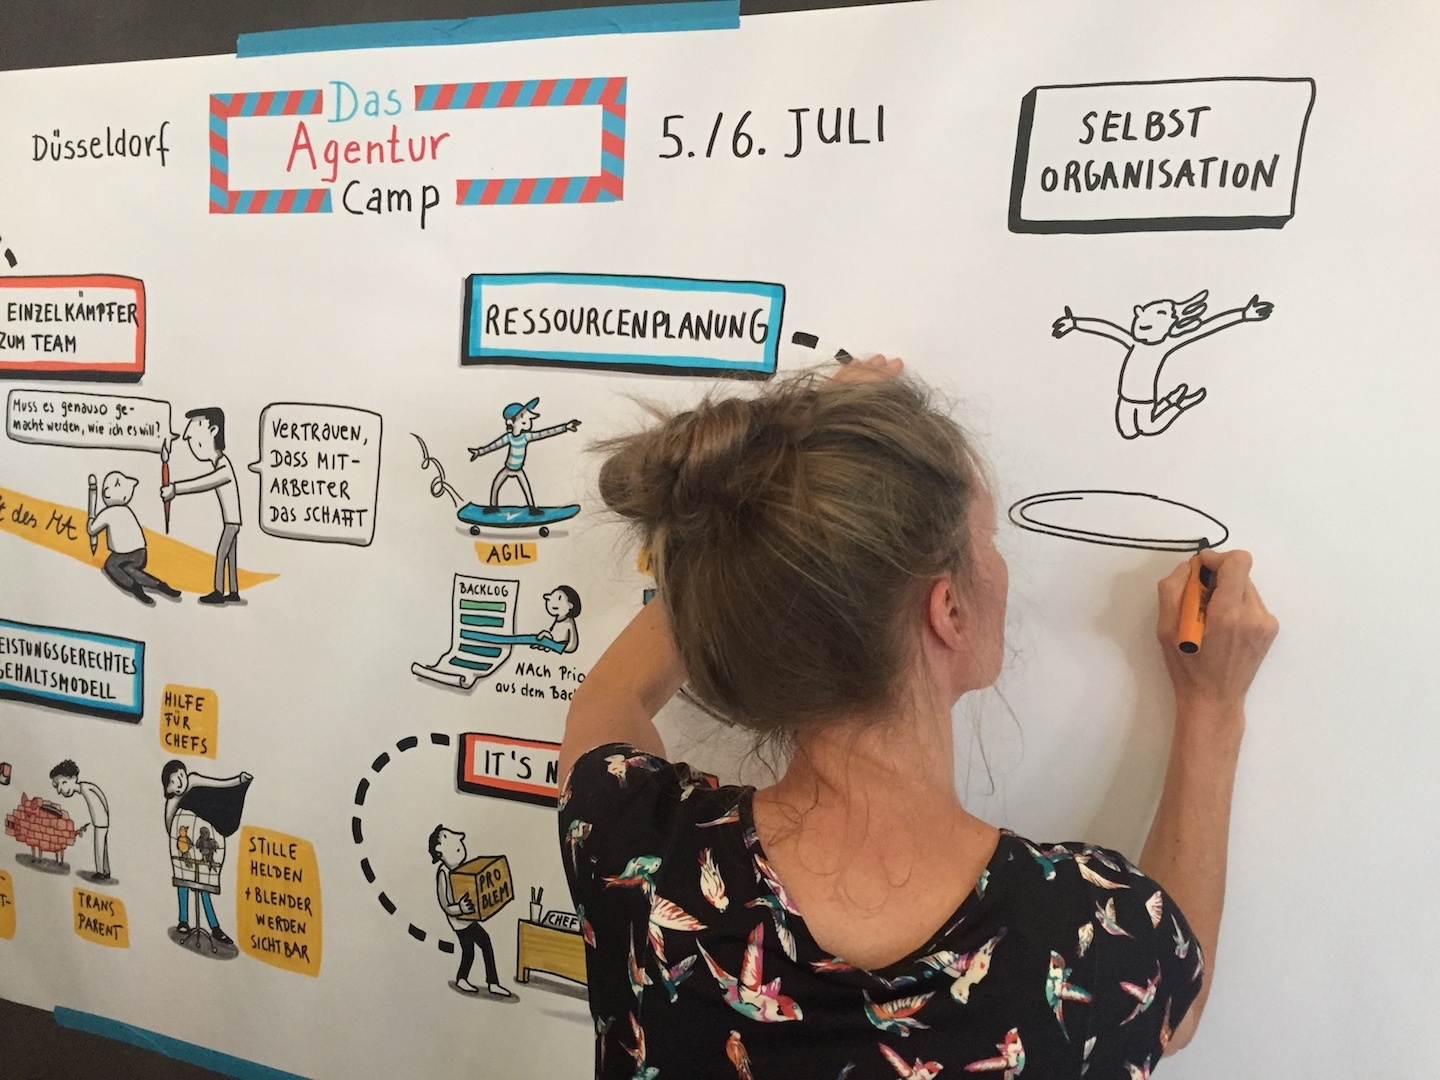 Düsseldorf
Das
Agentur
Camp
5./6. JULI
SELBST
ORGANISATION
EINZELKÄMPFER
ZUM TEAM
Muss es genauso ge-
macht werden, wie ich es will?
VERTRAUEN,
DASS MIT-
ARBEITER
DAS SCHAFFT
des MA
RESSOURCENPLANUNG
AGIL
BACKLOG
NACH
aus dem
GEHALTSMODELL
HILFE
FÜR
CHEFS
TRANS
PARENT
STILLE
HELDEN
+ BLENDER
WERDEN
SICHTBAR
IT'S
PRO
BLEM
CHEF